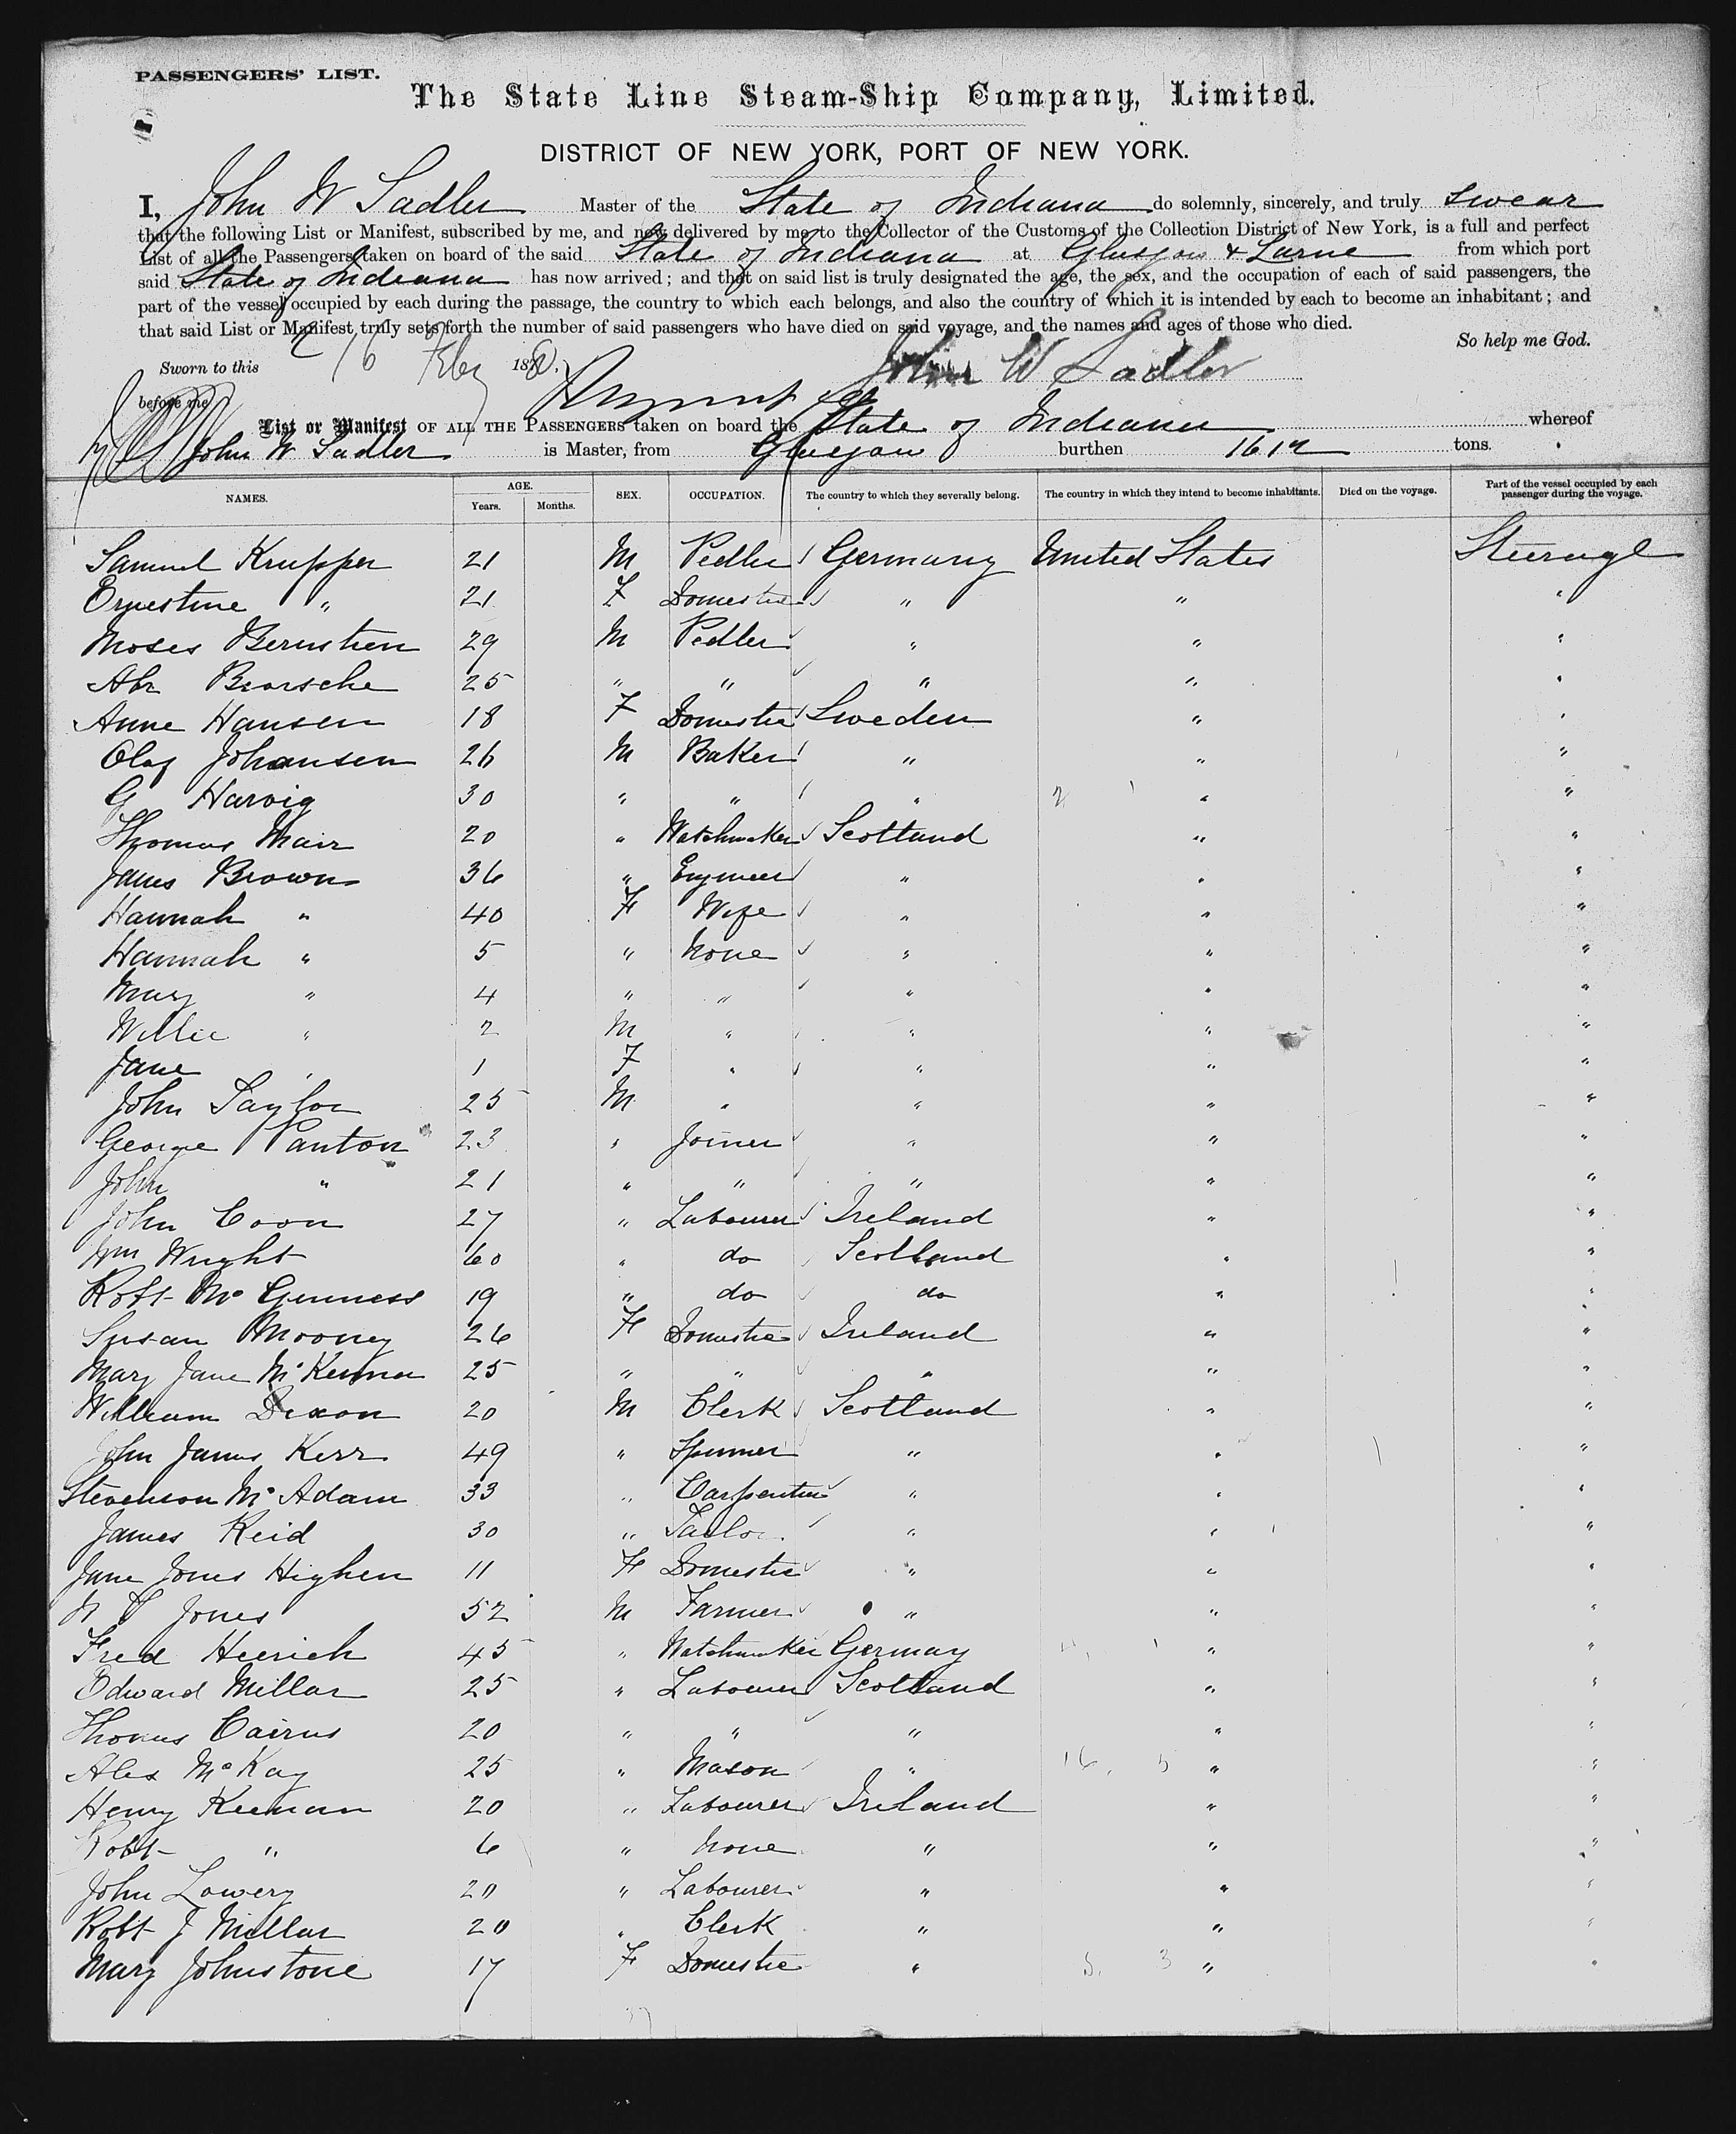 PASSENGERS' LIST.
The State Line Steam-Ship Company, Limited.
DISTRICT OF NEW YORK, PORT OF NEW YORK.
I, John W Sadler Master of the State of Indiana do solemnly, sincerely, and truly swear
that the following List or Manifest, subscribed by me, and now delivered by me to the Collector of the Customs of the Collection District of New York, is a full and perfect
List of all the Passengers taken on board of the said State of Indiana at Glasgow & Larne from which port
said State of Indiana has now arrived; and that on said list is truly designated the age, the sex, and the occupation of each of said passengers, the
part of the vessel occupied by each during the passage, the country to which each belongs, and also the country of which it is intended by each to become an inhabitant; and
that said List or Manifest truly sets forth the number of said passengers who have died on said voyage, and the names and ages of those who died.
So help me God.
Sworn to this 16 Feby 1880. John W Sadler
before me
List or Manifest OF ALL THE PASSENGERS taken on board the State of Indiana whereof
John W Sadler is Master, from Glasgow burthen 1612 tons.
NAMES. AGE. Years. Months. SEX. OCCUPATION. The country to which they severally belong. The country in which they intend to become inhabitants. Died on the voyage. Part of the vessel occupied by each passenger during the voyage.
Samuel Krupper 21 M Pedler Germany United States Steerage
Ernestine " 21 F Domestic " " "
Moses Bernstien 29 M Pedler " " "
Abr Biorsche 25 " " " " "
Anne Hansen 18 F Domestic Sweden " "
Olaf Johansen 26 M Baker " " "
G Harvig 30 " " " " "
Thomas Mair 20 " Watchmaker Scotland " "
James Brown 36 " Engineer " " "
Hannah " 40 F Wife " " "
Hannah " 5 " None " " "
Mary " 4 " " " " "
Willie " 2 M " " " "
Jane " 1 F " " " "
John Taylor 25 M " " " "
George Panton 23 " Joiner " " "
John " 21 " " " " "
John Coon 27 " Labourer Ireland " "
Wm Wright 60 " do Scotland " "
Robt Mc Genness 19 " do do " "
Susan Mooney 26 F Domestic Ireland " "
Mary Jane McKenna 25 " " " " "
William Dixon 20 M Clerk Scotland " "
John James Kerr 49 " Spinner " " "
Stevenson Mc Adam 33 " Carpenter " " "
James Reid 30 " Tailor " " "
Jane Jones Highen 11 F Domestic " " "
Jones 52 M Farmer " " "
Fred Heerich 45 " Watchmaker Germay " "
Edward Millar 25 " Labourer Scotland " "
Thomas Cairns 20 " " " " "
Alex McKay 25 " Mason " " "
Henry Keenan 20 " Labourer Ireland " "
Robt " 6 " None " " "
John Lowery 20 " Labourer " " "
Robt J Millar 20 " Clerk " " "
Mary Johnstone 17 F Domestic " " "